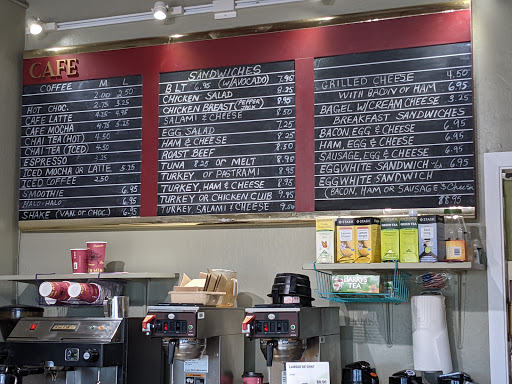 CAFE
COFFEE M L
2.00 2.50
HOT CHOC. 2.75 3.25
CAFE LATTE 4.25 4.95
CAFE MOCHA 4.75 5.25
CHAI TEA (HOT) 4.50
CHAI TEA (ICED) 4.50
ESPRESSO 3.25
ICED MOCHA OR LATTE 5.25
ICED COFFEE 2.50
SMOOTHIE 6.95
HALO-HALO 6.95
SHAKE (VAN. OR CHOC.) 6.95
SANDWICHES
BLT 6.95 (W/AVOCADO) 7.95
CHICKEN SALAD 8.25
CHICKEN BREAST (PEPPER JACK 8.95
SALAMI & CHEESE 8.50
EGG SALAD 7.25
HAM & CHEESE 8.25
ROAST BEEF 8.50
TUNA 8.25 OR MELT 8.90
TURKEY OR PASTRAMI 8.95
TURKEY, HAM & CHEESE 8.75
TURKEY OR CHICKEN CLUB 9.95
TURKEY, SALAMI & CHEESE 9.00
GRILLED CHEESE 4.50
WITH BACON OR HAM 6.95
BAGEL W/CREAM CHEESE 3.25
BREAKFAST SANDWICHES
BACON EGG & CHEESE 6.95
HAM, EGG & CHEESE 6.95
SAUSAGE, EGG & CHEESE 6.95
EGGWHITE SANDWICH 6.95
EGGWHITE SANDWICH
(BACON, HAM OR SAUSAGE & CHEESE
$8.95
STASH
STASH
GREEN TEA
STASH
BARRY'S
TEA